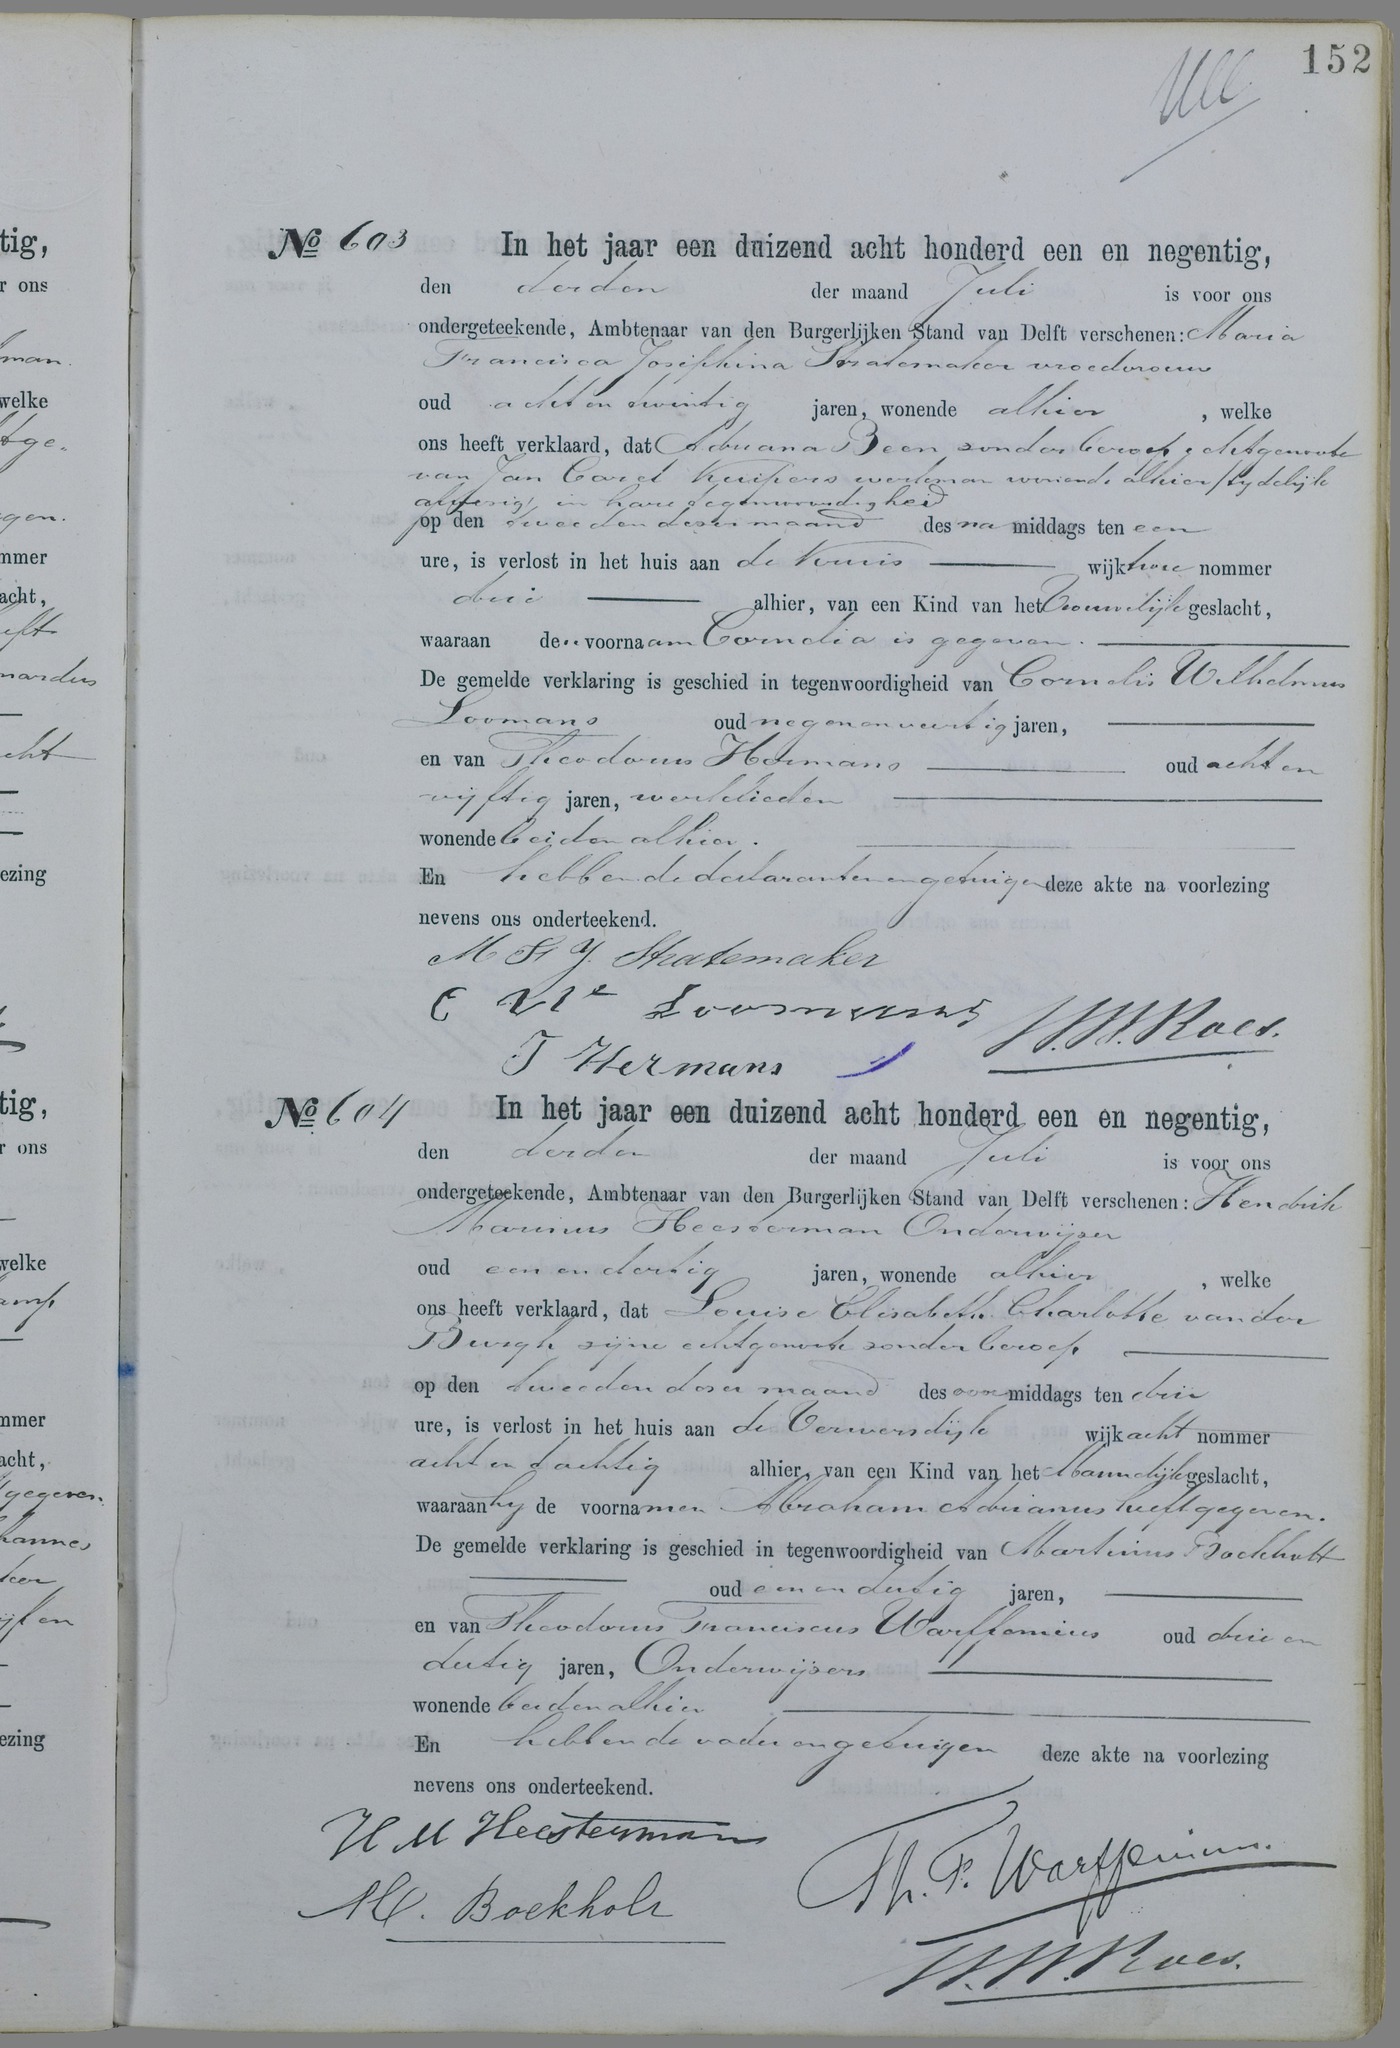 152
No 603 In het jaar een duizend acht honderd een en negentig,
den derden der maand Juli is voor ons
ondergeteekende, Ambtenaar van den Burgerlijken Stand van Delft verschenen: Maria
Francisca Josephina Stratemaker vroedvrouw
oud acht en twintig jaren, wonende alhier , welke
ons heeft verklaard, dat Adriana Been zonder beroep echtgenoote
van Jan Carel Kuipers werkman wonende alhier/tydelijk
afwezig/ in hare tegenwoordigheid
op den tweeden dezer maand des na middags ten een
ure, is verlost in het huis aan de wijk twee nommer
drie alhier, van een Kind van het Vrouwelijk geslacht,
waaraan den voornaam Cornelia is gegeven.
De gemelde verklaring is geschied in tegenwoordigheid van Cornelis Wilhelmus
Loomans oud negen en veertig jaren,
en van Theodorus Hermans oud acht en
vijftig jaren, werklieden
wonende beiden alhier.
En hebben de declarante en getuigen deze akte na voorlezing
nevens ons onderteekend.
M F J. Stratemaker
C W Loomans
W.W. Roes.
T Hermans
No 604 In het jaar een duizend acht honderd een en negentig,
den derden der maand Juli is voor ons
ondergeteekende, Ambtenaar van den Burgerlijken Stand van Delft verschenen: Hendrik
Marinus Heesterman Onderwijzer
oud een en dertig jaren, wonende alhier , welke
ons heeft verklaard, dat Louise Elisabeth Charlotte van der
Burgh zijne echtgenoote zonder beroep
op den tweeden dezer maand des voor middags ten drie
ure, is verlost in het huis aan de Verwersdijk wijk acht nommer
acht en tachtig alhier, van een Kind van het Mannelijk geslacht,
waaraan hy de voornamen Abraham Adrianus heeft gegeven.
De gemelde verklaring is geschied in tegenwoordigheid van Martinus Boekholt
oud een en dertig jaren,
en van Theodorus Franciscus Warffemius oud drie en
dertig jaren, Onderwijzers
wonende beiden alhier
En hebben de vader en getuigen deze akte na voorlezing
nevens ons onderteekend.
H M Heesterman
Th. F. Warffemius.
M. Boekholt
W.W. Roes.